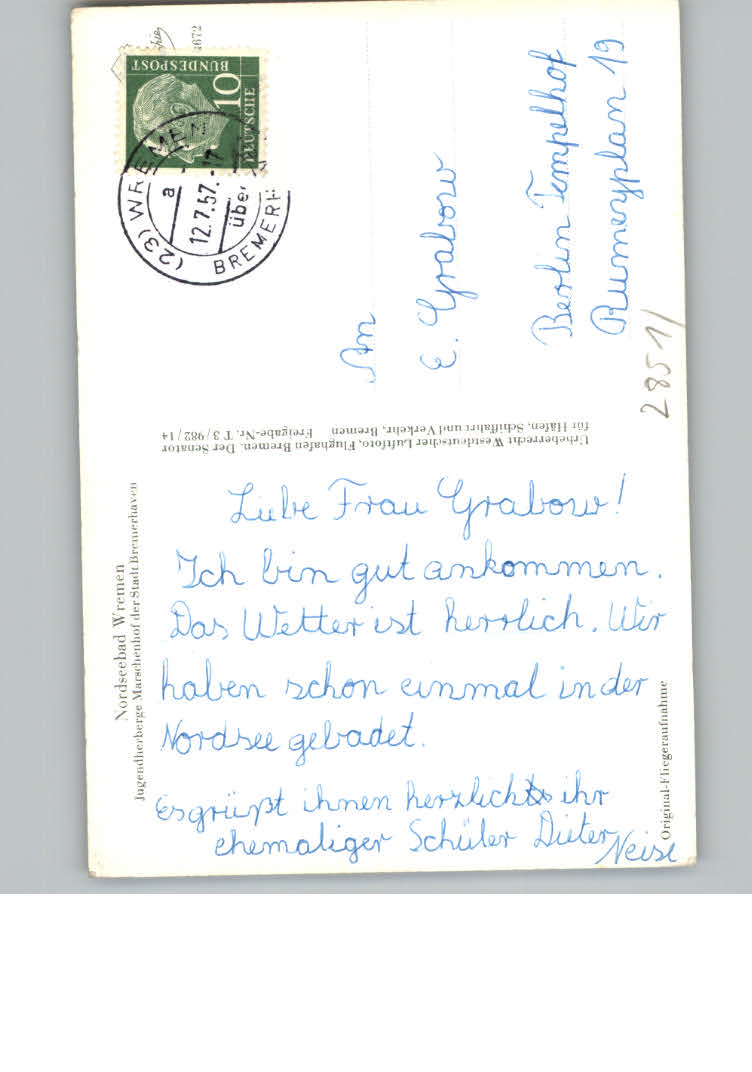 Nordseebad Wremen
Jugendherberge Marschenhof der Stadt Bremerhaven
Liebe Frau Grabow!
Ich bin gut ankommen.
Das Wetter ist herrlich. Wir
haben schon einmal in der
Nordsee gebadet.
Es grüßt ihnen herzlichts ihr
ehemaliger Schüler Dieter
Neise
Original-Fliegeraufnahme
Urheberrecht Westdeutscher Luftfoto, Flughafen Bremen. Der Senator
für Häfen, Schiffahrt und Verkehr, Bremen Freigabe-Nr. T 3/982/14
4672
DEUTSCHE
BUNDESPOST
10
(23) WREMEN
a
12.7.57.-17
über
BREMERH
An
E. Grabow
Berlin Tempelhof
Rumeyplan 19
2851/